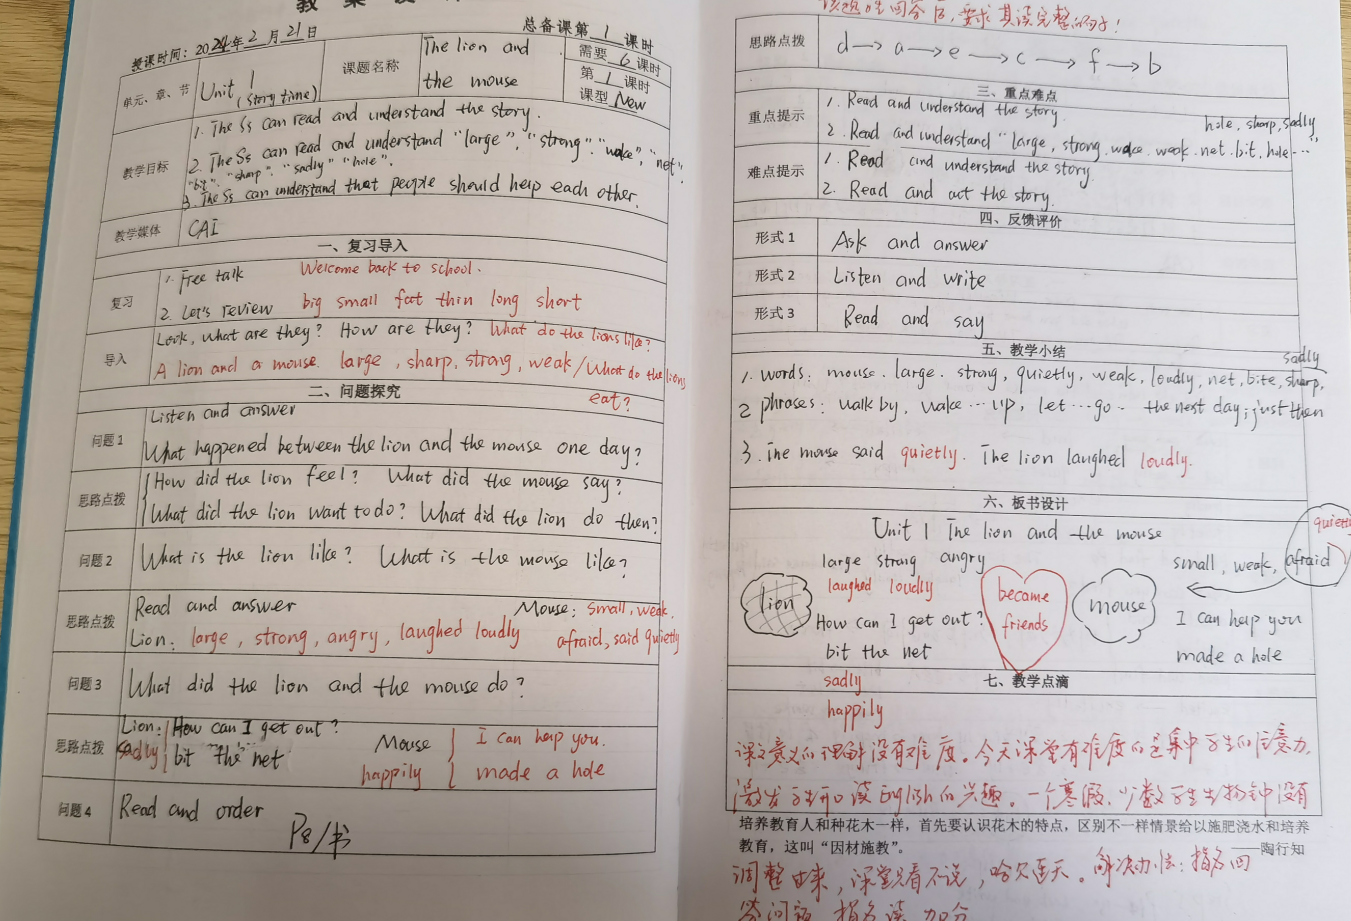 教 案 设
授课时间：2024年2月21日 总备课第 1 课时
单元、章、节 Unit 1 (Story time) 课题名称 The lion and the mouse 需要 6 课时 第 1 课时 课型 New
教学目标
1. The Ss can read and understand the story.
2. The Ss can read and understand "large", "strong". "wake", "net".
"bit". "sharp". "sadly" "hole".
3. The Ss can understand that people should help each other.
教学媒体 CAI
一、复习导入
复习
1. Free talk Welcome back to school.
2. Let's review big small fat thin long short
导入
Look, What are they? How are they? What do the lions like?
A lion and a mouse. large, sharp, strong, weak/What do the lions
eat?
二、问题探究
问题1
Listen and answer
What happened between the lion and the mouse one day?
思路点拨
How did the lion feel? What did the mouse say?
What did the lion want to do? What did the lion do then?
问题2 What is the lion like? What is the mouse like?
思路点拨
Read and answer Mouse: small, weak.
Lion: large, strong, angry, laughed loudly afraid, said quietly
问题3 What did the lion and the mouse do?
思路点拨
Lion: How can I get out? Mouse I can help you.
sadly bit the net happily made a hole
问题4 Read and order
P8/书
该题生回答后，要求其读完整的句子！
思路点拨 d→a→e→c→f→b
三、重点难点
重点提示
1. Read and understand the story.
hole, sharp, sadly
2. Read and understand "large, strong, wake. weak. net. bit, hole..."
难点提示
1. Read and understand the story.
2. Read and act the story.
四、反馈评价
形式1 Ask and answer
形式2 Listen and write
形式3 Read and say
五、教学小结
sadly
1. words: mouse. large. strong, quietly, weak, loudly, net, bite, sharp,
2 phrases: walk by, wake...up, let...go. the next day; just then
3. The mouse said quietly. The lion laughed loudly.
六、板书设计
Unit 1 The lion and the mouse
quietly
large strong angry small, weak, afraid
laughed loudly
lion became friends mouse
How can I get out? I can help you
bit the net made a hole
sadly
七、教学点滴
happily
课文意义的理解没有难度。今天课堂有难度的是集中学生的注意力，
激发学生开口读English的兴趣。一个寒假，少数学生生物钟没有
培养教育人和种花木一样，首先要认识花木的特点，区别不一样情景给以施肥浇水和培养
教育，这叫“因材施教”。 ——陶行知
调整过来，课堂只看不说，哈欠连天。解决办法：指名回
答问题，指名读，加分